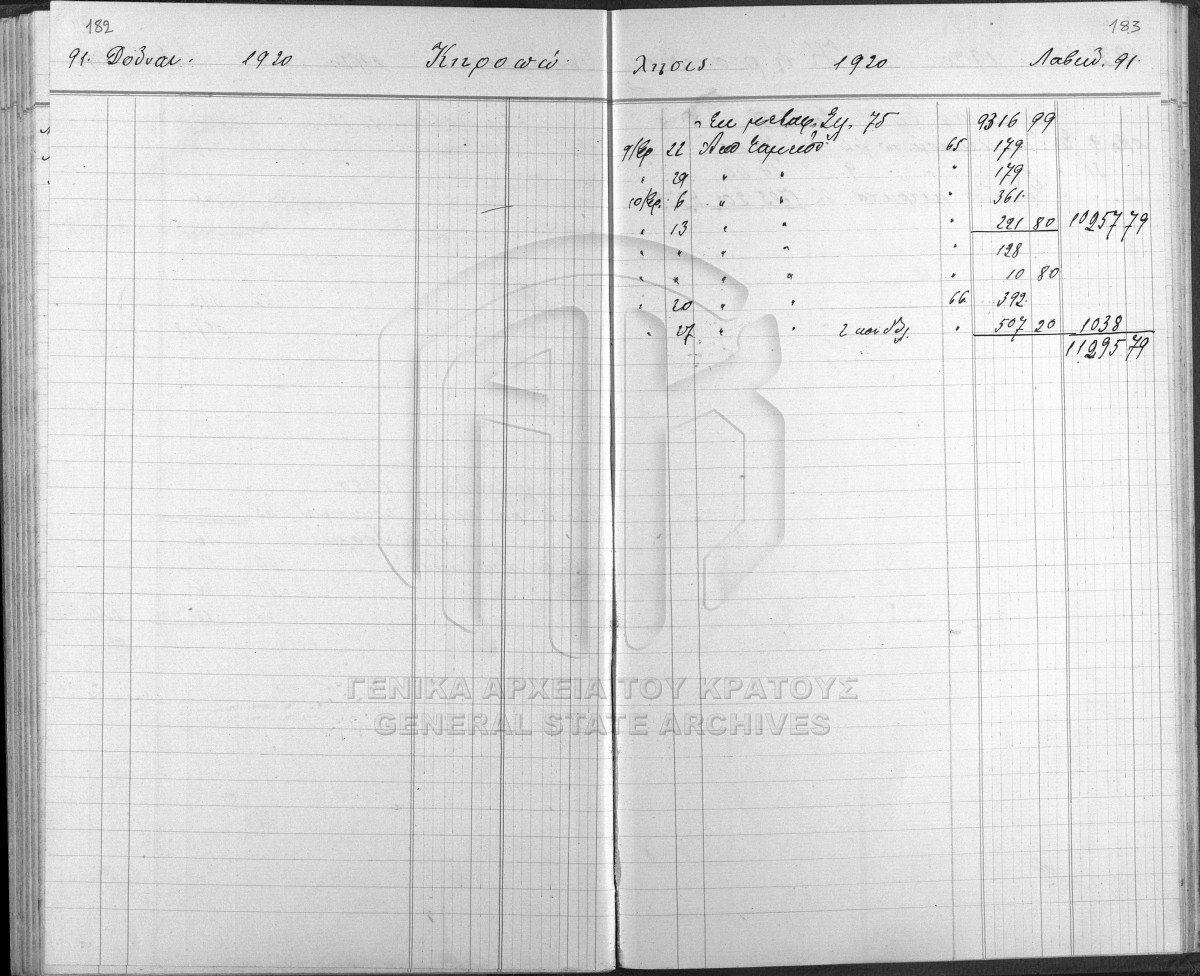 182
91. Δοῦναι. 1920 Κηροπώ
183
λησις 1920 Λαβεῖν. 91.
" Ἐκ μεταφ. Σελ. 75 9316 99
9/βρ 22 Ἀπὸ Ταμεῖον 65 179
" 29 " " " 179
10/βρ. 6 " " " 361.
" 13 " " " 221 80 10257 79
" " " " " 128
" " " " " 10 80
" 20 " " 66 392.
" 27 " " 2 " 507 20 1038
11295 79
ΓΕΝΙΚΑ ΑΡΧΕΙΑ ΤΟΥ ΚΡΑΤΟΥΣ
GENERAL STATE ARCHIVES